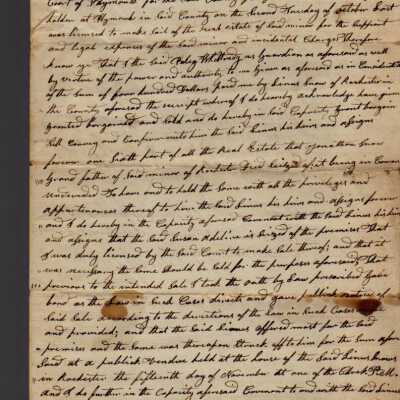 Court of
holden at Plymouth in said County on the second Tuesday of October last
was licensed to make Sail of the real estate of said minor for the support
and legal expences of the said minor and incidental Charges Therefore
know ye That I the said Guardian as aforesaid as well
by virtue of the power and authority to me given as aforesaid as in Consideration
of the Sum of four hundred Dollars paid me by Simes Snow of Rochester in
the County aforesaid the receipt whereof I do hereby acknowledge have given
granted bargained and Sold and do hereby in said Capacity grant bargain
Sell Convey and Confirm unto him the Said his heirs and assigns
forever one Sixth part of all the Real Estate that Jonathan Snow
Grand father of Said minor of Rochester Died Seized of it being in Common
undivided To have and to hold the Same with all the priviledges and
appurtenances thereof to him the Said his heirs and assigns forever
and I do hereby in the Capacity aforesaid Covenant with the Said his heirs
and assigns that the Said Susan Adeline is Seized of the premises That
I was duly licensed by the Said Court to make Sale thereof; and that it
was necessary the Same should be Sold for the purposes aforesaid That
previous to the intended Sale I took the Oath by Law prescribed Gave
bond as the Law in such Cases directs and gave publick notice of
Said Sale according to the directions of the Law in Such Cases
and provided; and that the Said offered most for the Said
premises and the Same was thereupon Struck off to him for the Sum afore
Said at a publick Vendue held at the house of the Said Snow
in Rochester the fifteenth day of November at one of the Clock P.M.
And I do further in the Capacity aforesaid Covenant to and with the Said